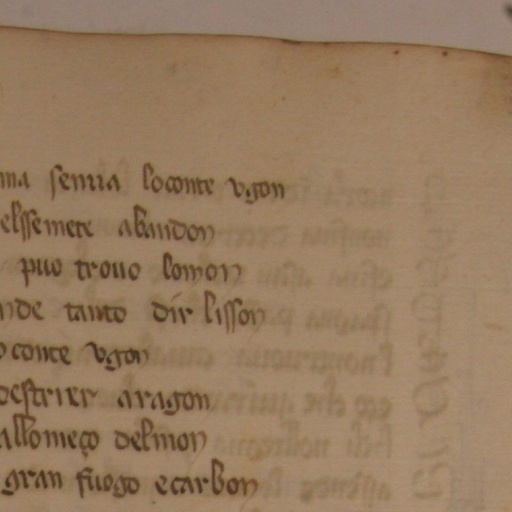 ma semia loconte vgon
elssemete abandon
puo trouo lomon
nde tanto dir lisson
oconte vgon
destrier aragon
allomeço delmon
gran fuogo ecarbon